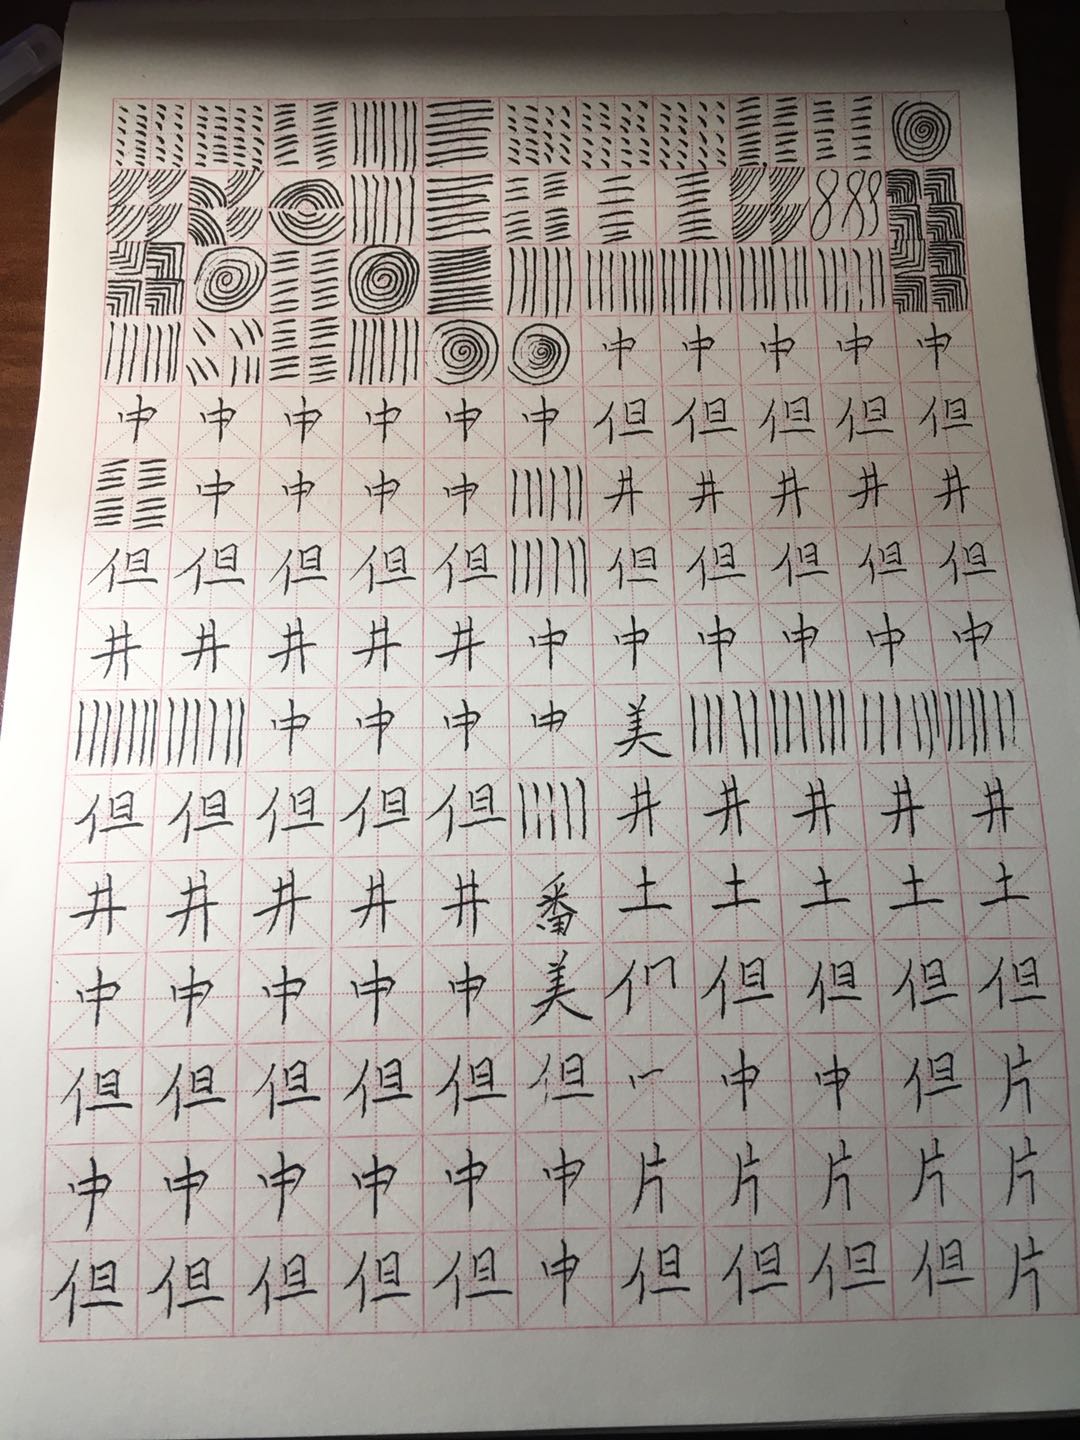 中中中中中
中中中中中中但但但但但
中中中中井井井井井
但但但但但但但但但但
井井井井井中中中中中中
中中中中美
但但但但但井井井井井
井井井井井番土土土土土
中中中中中美们但但但但
但但但但但但中中但片
中中中中中中片片片片片
但但但但但中但但但但片